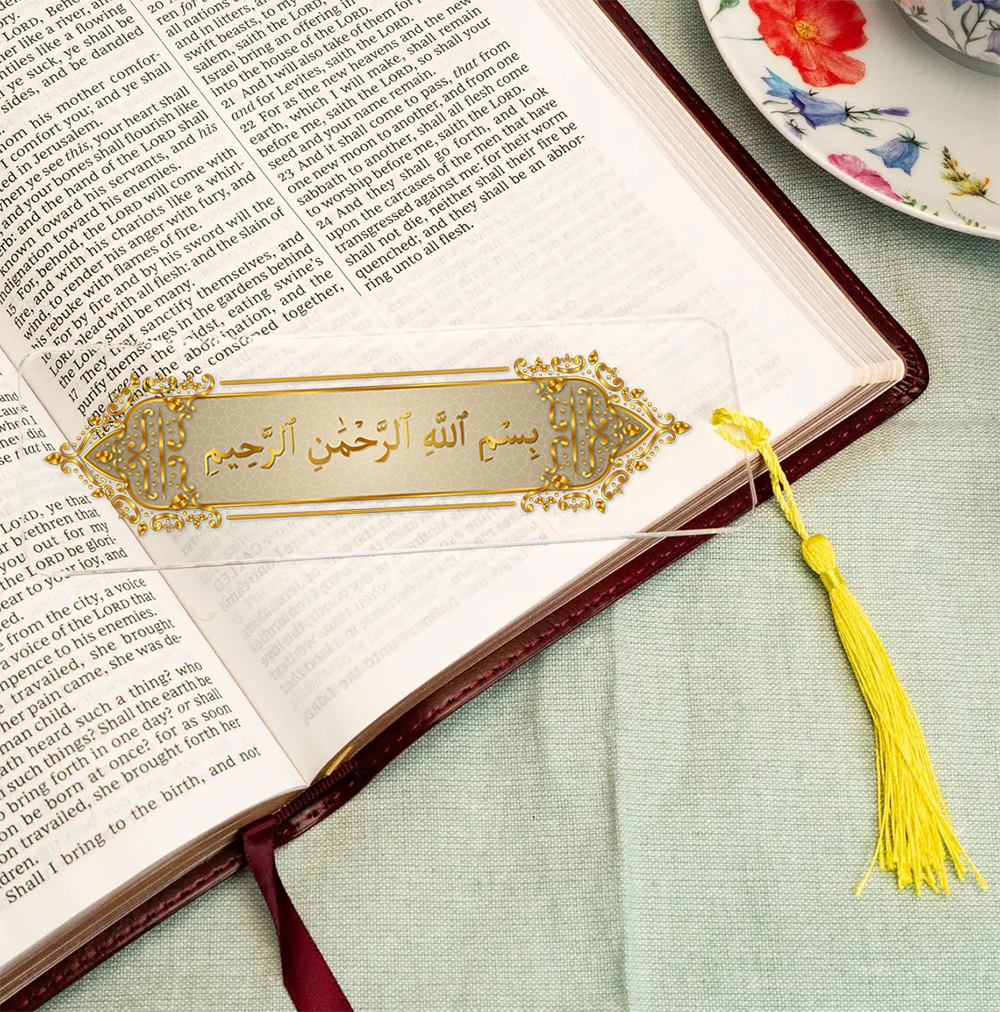 her like a river, and
ntiles like a flowing
ye suck, ye shall be
sides, and be dandled
om his mother comfor
I comfort you; and ye shall
d in Jerusalem.
en ye see this, your heart shall
nd your bones shall flourish like
rb: and the hand of the LORD shall
known toward his servants, and his
dignation toward his enemies.
For, behold, the LORD will come with
fire, and with his chariots like a whirl-
wind, to render his anger with fury, and
his rebuke with flames of fire.
For by fire and by his sword will the
LORD plead with all flesh: and the slain of
the LORD shall be many.
17 They that sanctify themselves, and
purify themselves in the gardens behind
tree in the midst, eating swine's
the abomination, and the
be consumed together,
ren for an offering
all nations
and in litters, and
swift beasts, to
salem, saith the LORD,
Israel bring an offering in
into the house of the LORD.
21 And I will also take of them for
and for Levites, saith the LORD.
22 For as the new heavens and the new
earth, which I will make, shall remain
before me, saith the LORD, so shall your
seed and your name remain.
23 And it shall come to pass, that from
one new moon to another, and from one
sabbath to another, shall all flesh come
to worship before me, saith the LORD.
24 And they shall go forth, and look
upon the carcases of the men that have
transgressed against me: for their worm
shall not die, neither shall their fire be
quenched; and they shall be an abhor-
ring unto all flesh.
بِسْمِ ٱللَّهِ ٱلرَّحْمَٰنِ ٱلرَّحِيمِ
and
did
that in
LORD, ye that
brethren that
you out for my
the LORD be glori-
ear to your joy, and
ed.
from the city, a voice
a voice of the LORD that
mpence to his enemies.
travailed, she brought
her pain came, she was de-
man child.
ath heard such a thing? who
such things? Shall the earth be
bring forth in one day? or shall
on be born at once? for as soon
on travailed, she brought forth her
dren.
Shall I bring to the birth, and not